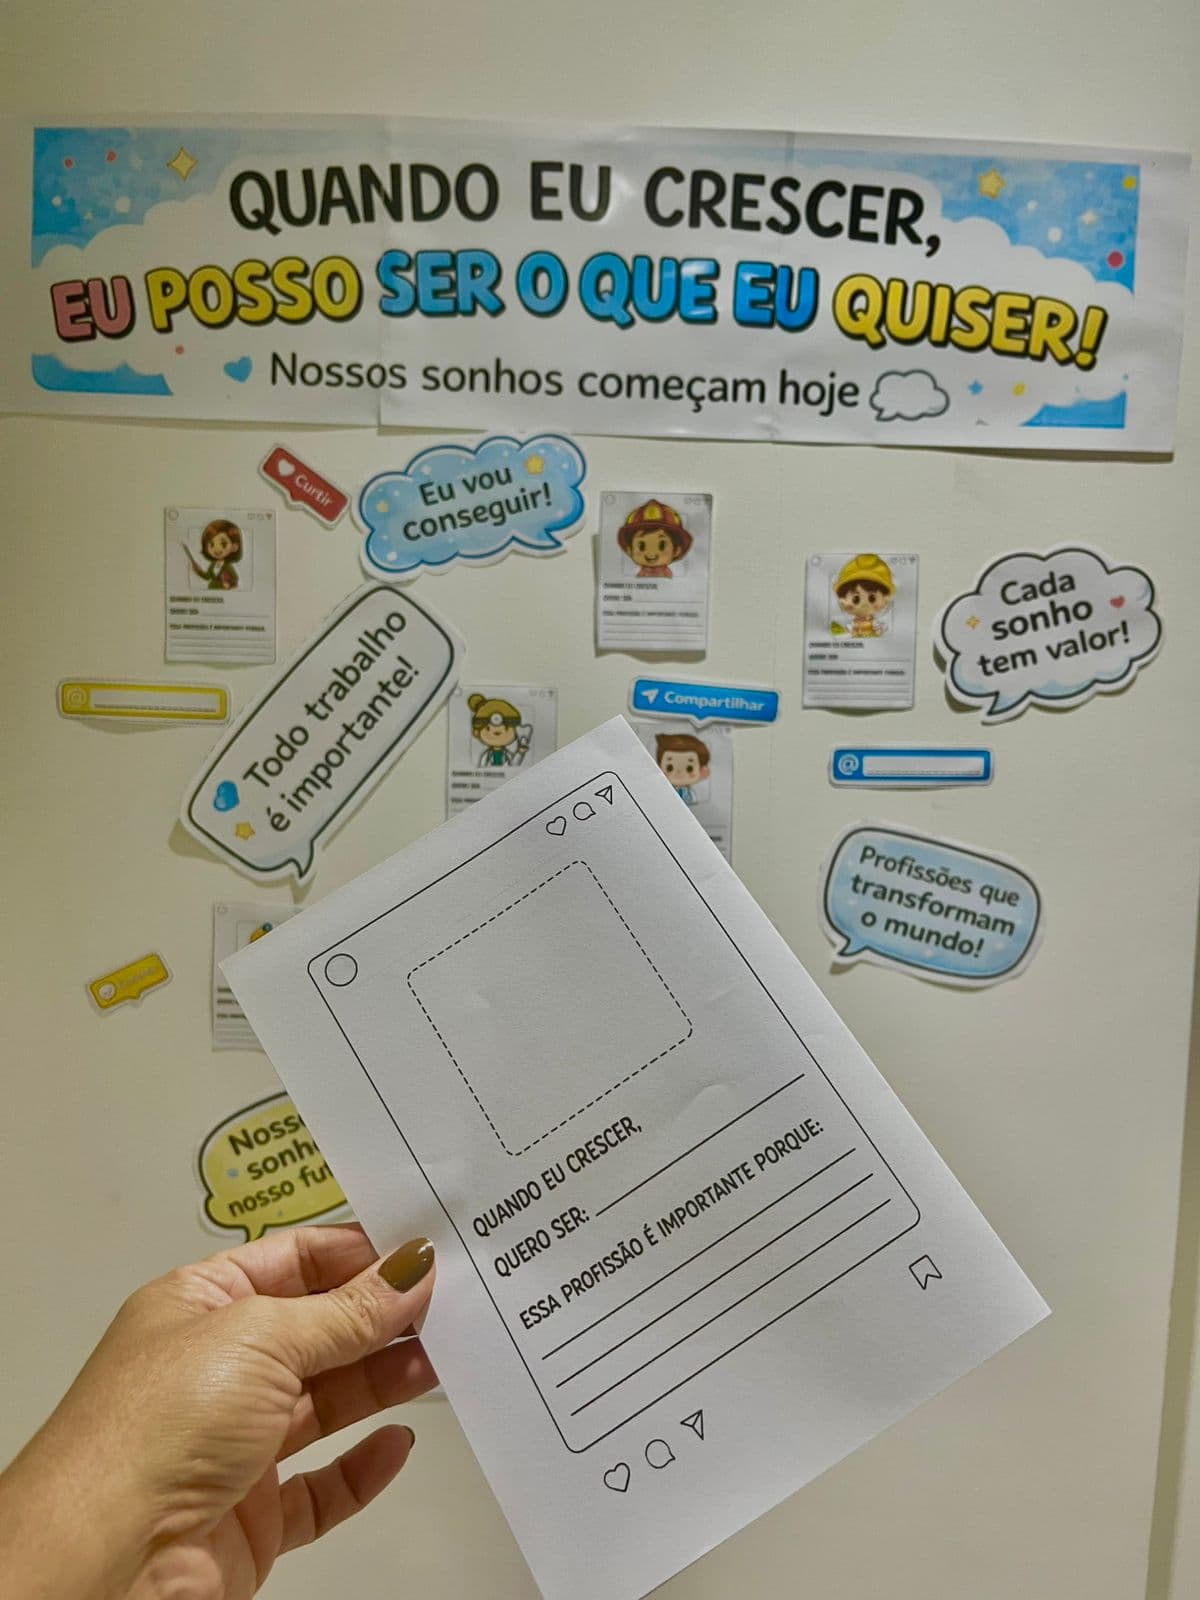 QUANDO EU CRESCER,
EU POSSO SER O QUE EU QUISER!
Nossos sonhos começam hoje
Curtir
Eu vou
conseguir!
Cada
sonho
tem valor!
Todo trabalho
é importante!
@
Compartilhar
@
Profissões que
transformam
o mundo!
QUANDO EU CRESCER,
QUERO SER:
ESSA PROFISSÃO É IMPORTANTE PORQUE:
nosso